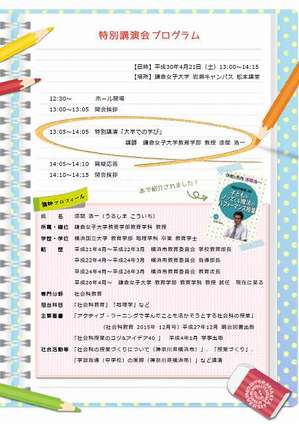 特別講演会プログラム
【日時】平成30年4月21日（土）13:00～14:15
【場所】鎌倉女子大学 岩瀬キャンパス 松本講堂
12:30～ ホール開場
13:00～13:05 開会挨拶
13:05～14:05 特別講演「大学での学び」
講師 鎌倉女子大学教育学部 教授 漆間 浩一
14:05～14:10 質疑応答
14:10～14:15 閉会挨拶
本で紹介されました！
講師プロフィール
氏 名 漆間 浩一（うるしま こういち）
所属・職位 鎌倉女子大学教育学部教育学科 教授
学歴・学位 横浜国立大学 教育学部 地理学科 卒業 教育学士
略 歴 平成21年4月～平成22年3月 横浜市教育委員会 学校教育部長
平成22年4月～平成24年3月 横浜市教育委員会 指導部長
平成24年4月～平成26年3月 横浜市教育委員会 教育次長
平成26年4月～ 鎌倉女子大学 教育学部 教育学科 教授 就任 現在に至る
専門分野 社会科教育
担当科目 「社会科教育」「地理学」など
主要著書 「アクティブ・ラーニングで学んだことを生活から生かそうとする社会科の授業」
（社会科教育 2015年 12月号）平成27年12月 明治図書出版
「社会科授業のコツ&アイデア40」 平成4年1月 学事出版
社会活動等 「社会科の授業づくりについて（神奈川県横浜市）」、「授業づくり」、
「学習指導（中学校）の実際（神奈川県横浜市）」など講演